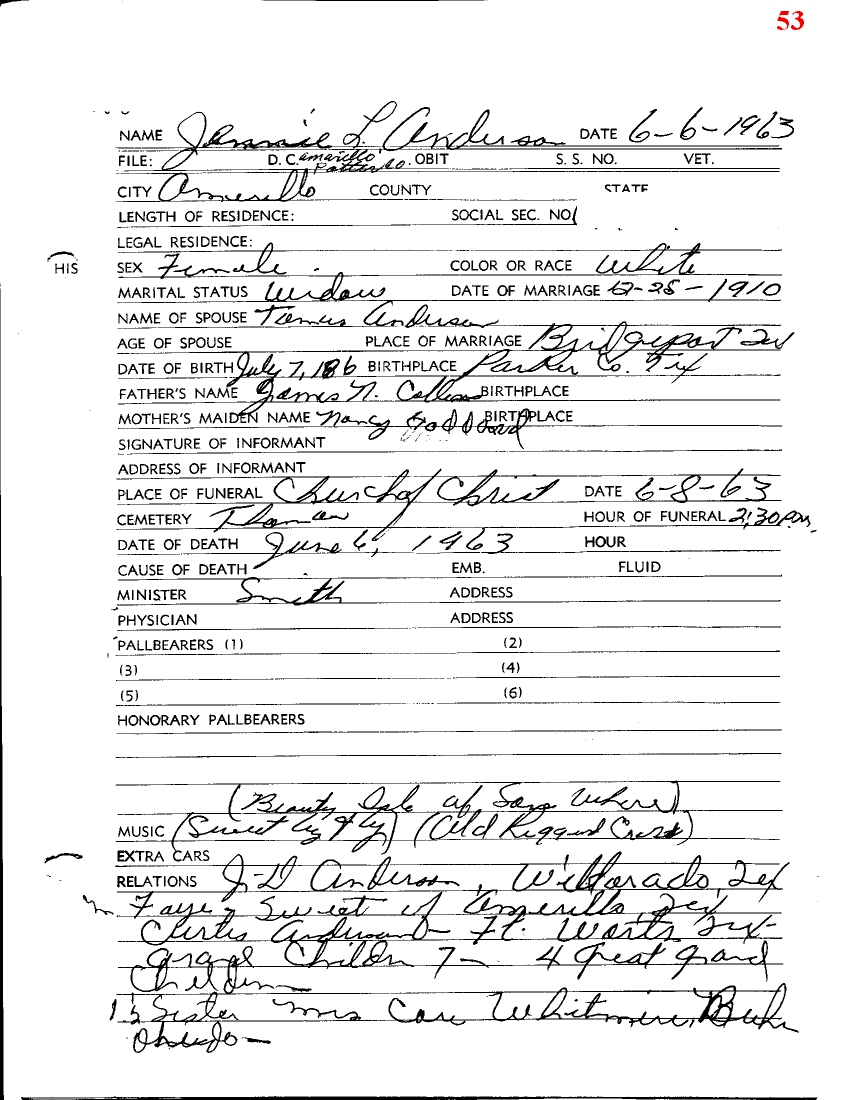 53
NAME Jennie L Anderson DATE 6-6-1963
FILE: D.C. Amarillo Potter Co. OBIT S. S. NO. VET.
CITY Amarillo COUNTY STATE
LENGTH OF RESIDENCE: SOCIAL SEC. NO
LEGAL RESIDENCE:
HIS
SEX Female COLOR OR RACE White
MARITAL STATUS Widow DATE OF MARRIAGE 12-25-1910
NAME OF SPOUSE Anderson
AGE OF SPOUSE PLACE OF MARRIAGE Bridgeport Tex
DATE OF BIRTH July 7, 186 BIRTHPLACE Parker Co. Tex
FATHER'S NAME James N. BIRTHPLACE
MOTHER'S MAIDEN NAME Nancy Goddard BIRTHPLACE
SIGNATURE OF INFORMANT
ADDRESS OF INFORMANT
PLACE OF FUNERAL Church of Christ DATE 6-8-63
CEMETERY HOUR OF FUNERAL 2:30 P.m.
DATE OF DEATH June 6, 1963 HOUR
CAUSE OF DEATH EMB. FLUID
MINISTER Smith ADDRESS
PHYSICIAN ADDRESS
PALLBEARERS (1) (2)
(3) (4)
(5) (6)
HONORARY PALLBEARERS
(Beauty Isle of Some Where)
MUSIC (Sweet by & by) (Old Rugged Cross)
EXTRA CARS
RELATIONS J-D Anderson, Wildorado, Tex
Faye Sweet of Amarillo, Tex
Curtis Anderson - Ft. Worth Tex-
grand Children 7- 4 Great grand
Children
Sister Mrs Whitmire, Buhl